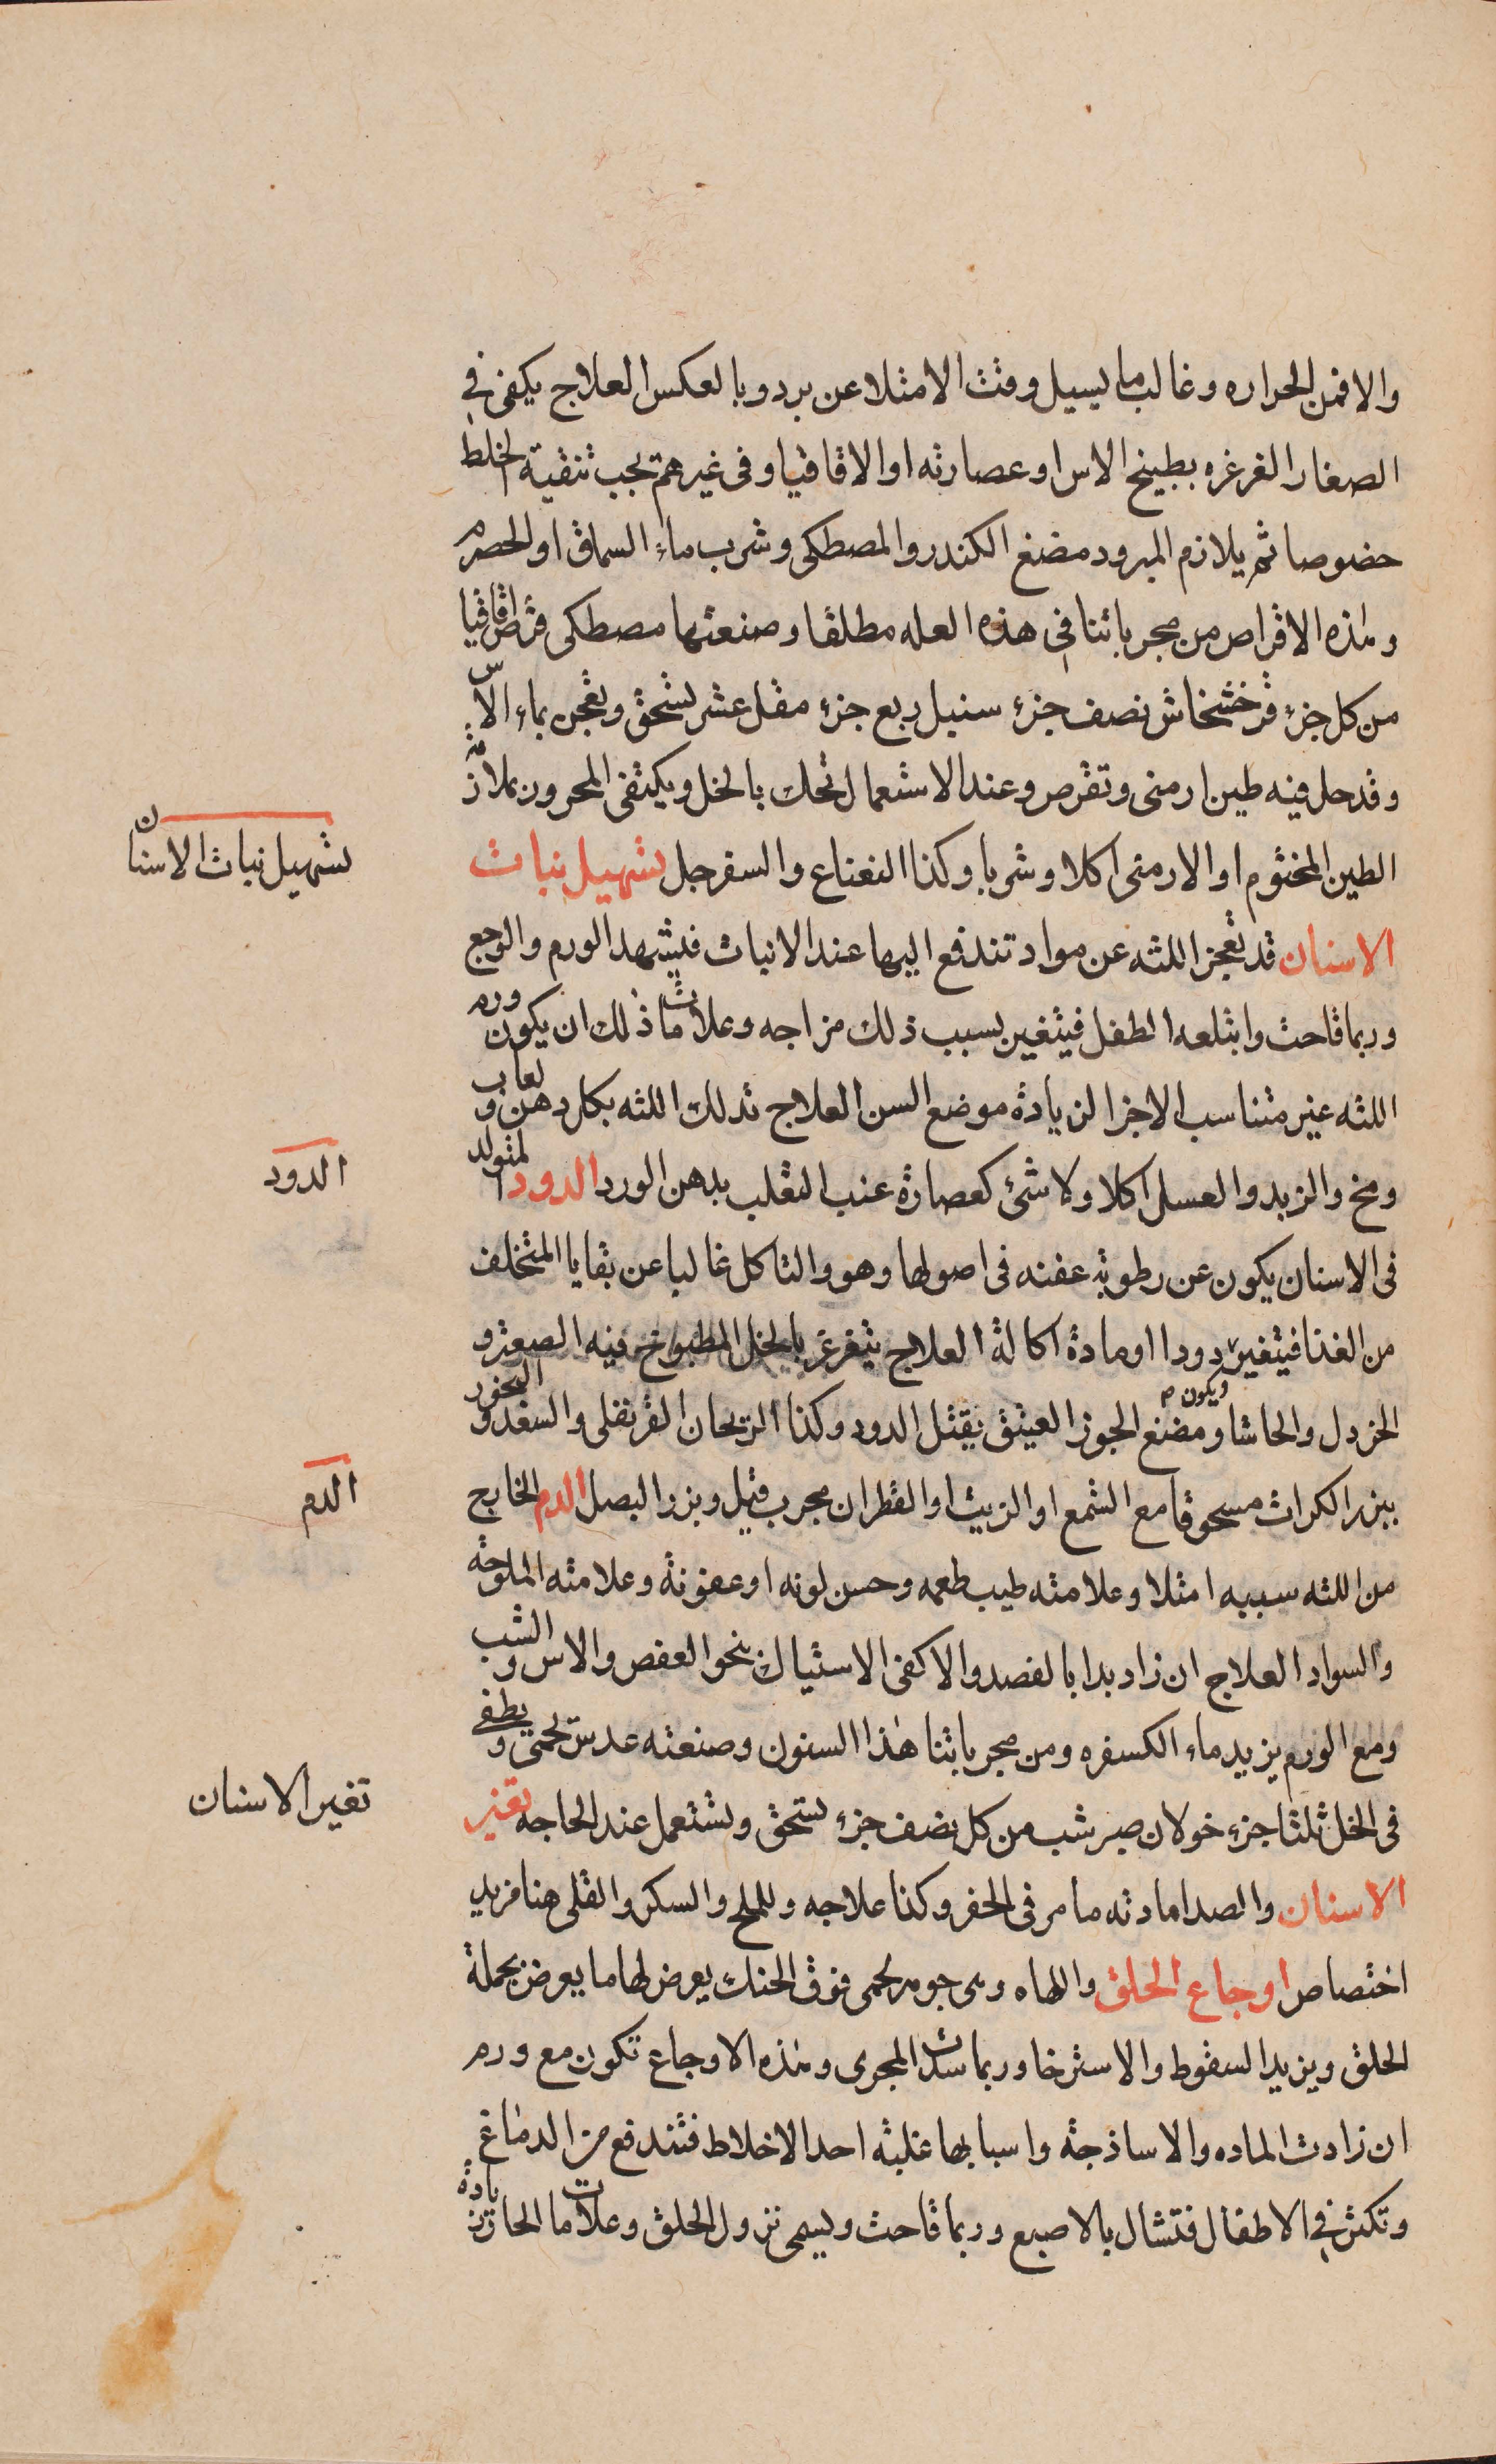 والا فمن الحراره وغالب ما يسيل وقت الامتلا عن برد وبالعكس العلاج يكفى في
الصغار الغرغره بطبيخ الاس او عصارته او الاقاقيا وفى غيرهم تجب تنقية الخلط
خصوصا ثم يلازم المبرود مضغ الكندر والمصطكى وشرب ماء السماق او الحصرم
وهذه الاقراص من مجرباتنا في هذه العله مطلقا وصنعتها مصطكى قرض اقاقيا
من كل جزء قرخشخاش نصف جزء سنبل ربع جزء مقل عشر يسحق ويعجن بماء الاس
وقد حل فيه طين ارمنى وتقرص وعند الاستعمال تحك بالخل ويكتفى المحرور بملازمة
الطين المختوم او الارمنى اكلا وشربا وكذا النعناع والسفرجل تسهيل نبات
تسهيل نبات الاسنان
الاسنان قد تعجز اللثه عن مواد تندفع اليها عند الانبات فيشهد الورم والوجع
وربما قاحت وابتلعه الطفل فيتغير بسبب ذلك مزاجه وعلامات ذلك ان يكون ورم
اللثه غير متناسب الاجزا لزيادة موضع السن العلاج تدلك اللثه بكل دهن ولعاب
ومخ والزبد والعسل اكلا ولا شئ كعصارة عنب الثعلب بدهن الورد الدود المتولد
الدود
فى الاسنان يكون عن رطوبة عفنه فى اصولها وهو والتاكل غالبا عن بقايا المتخلف
من الغذا فيتغير دودا او مادة اكالة العلاج يتغرغر بالخل المطبوخ فيه الصعتر و
الخردل والحاشا ويكون م ومضغ الجوز العتيق يقتل الدود وكذا الريحان القرنفلى والسعد والبخور
ببزر الكراث مسحوقا مع الشمع او الزيت او القطران مجرب قيل وبزر البصل الدم الخارج
الدم
من اللثه سببه امتلا وعلامته طيب طعمه وحسن لونه او عفونة وعلامته الملوحة
والسواد العلاج ان زاد بدا بالفصد والا كفى الاستياك بنحو العفص والاس والشب
ومع الورم يزيد ماء الكسفره ومن مجرباتنا هذا السنون وصنعته عدس يحمى ويطفى
فى الخل ثلثا جزء خولان صبر شب من كل نصف جزء يسحق ويستعمل عند الحاجه تغير
تغير الاسنان
الاسنان والصدا مادته ما مر فى الحفر وكذا علاجه وللملح والسكر والقلى هنا مزيد
اختصاص اوجاع الحلق واللهاه وهى جوهر لحمى فوق الحنك يعرض لها ما يعرض بجملة
الحلق ويزيد السقوط والاسترخا وربما سدت المجرى وهذه الاوجاع تكون مع ورم
ان زادت الماده والا ساذجة واسبابها غلبة احد الاخلاط فتندفع من الدماغ
وتكثر في الاطفال فتشال بالاصبع وربما قاحت ويسمى نزول الحلق وعلامات الحار زيادة